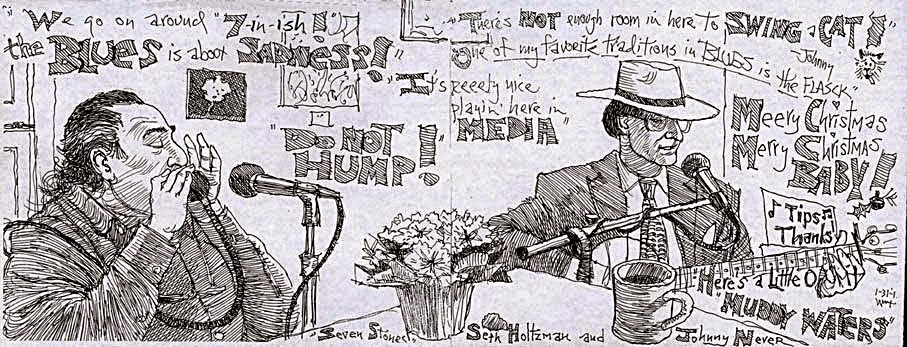 "We go on around "7-in-ish!"
the BLUES is about SADNESS!"
"DO NOT
HUMP!"
"There's NOT enough room in here to SWING a CAT!"
One of my favorite traditions in BLUES is
Johnny
the FLASCK"
"It's reeely nice
playin' here in
MEDIA"
Meery Christmas
Merry Christmas
BABY!
Tips
Thanks
"Here's a little O
"MUDDY WATERS"
Seven Stones.
Seth Holtzman and
Johnny Never